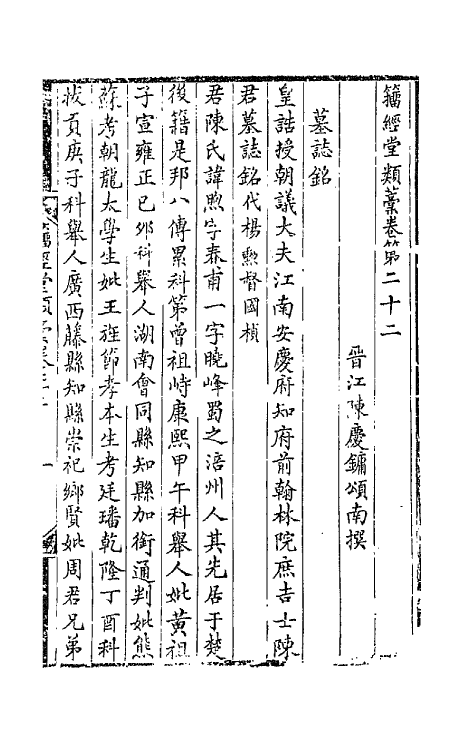 籀經堂類藁卷第二十二
晉江陳慶鏞頌南撰
墓誌銘
皇誥授朝議大夫江南安慶府知府前翰林院庶吉士陳
君墓誌銘代楊勲督國楨
君陳氏諱煦字春甫一字曉峰蜀之涪州人其先居于楚
後籍是邦八傳累科第曾祖峙康熙甲午科舉人妣黃祖
子宣雍正巳卯科舉人湖南會同縣知縣加銜通判妣熊
蘇考朝龍太學生妣王旌節孝本生考廷璠乾隆丁酉科
拔貢庚子科舉人廣西藤縣知縣崇祀鄉賢妣周君兄弟
一